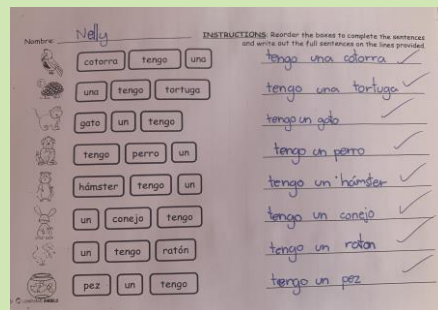 Nombre: Nelly
INSTRUCTIONS: Reorder the boxes to complete the sentences
and write out the full sentences on the lines provided.
cotorra tengo una tengo una cotorra
una tengo tortuga tengo una tortuga
gato un tengo tengo un gato
tengo perro un tengo un perro
hámster tengo un tengo un hámster
un conejo tengo tengo un conejo
un tengo ratón tengo un raton
pez un tengo tengo un pez